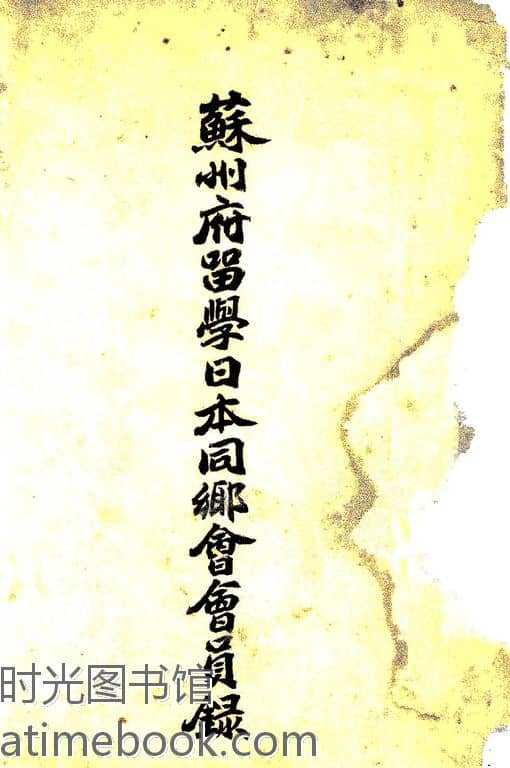 蘇州府畱學日本同鄉會會員錄
时光图书馆
atimebook.com